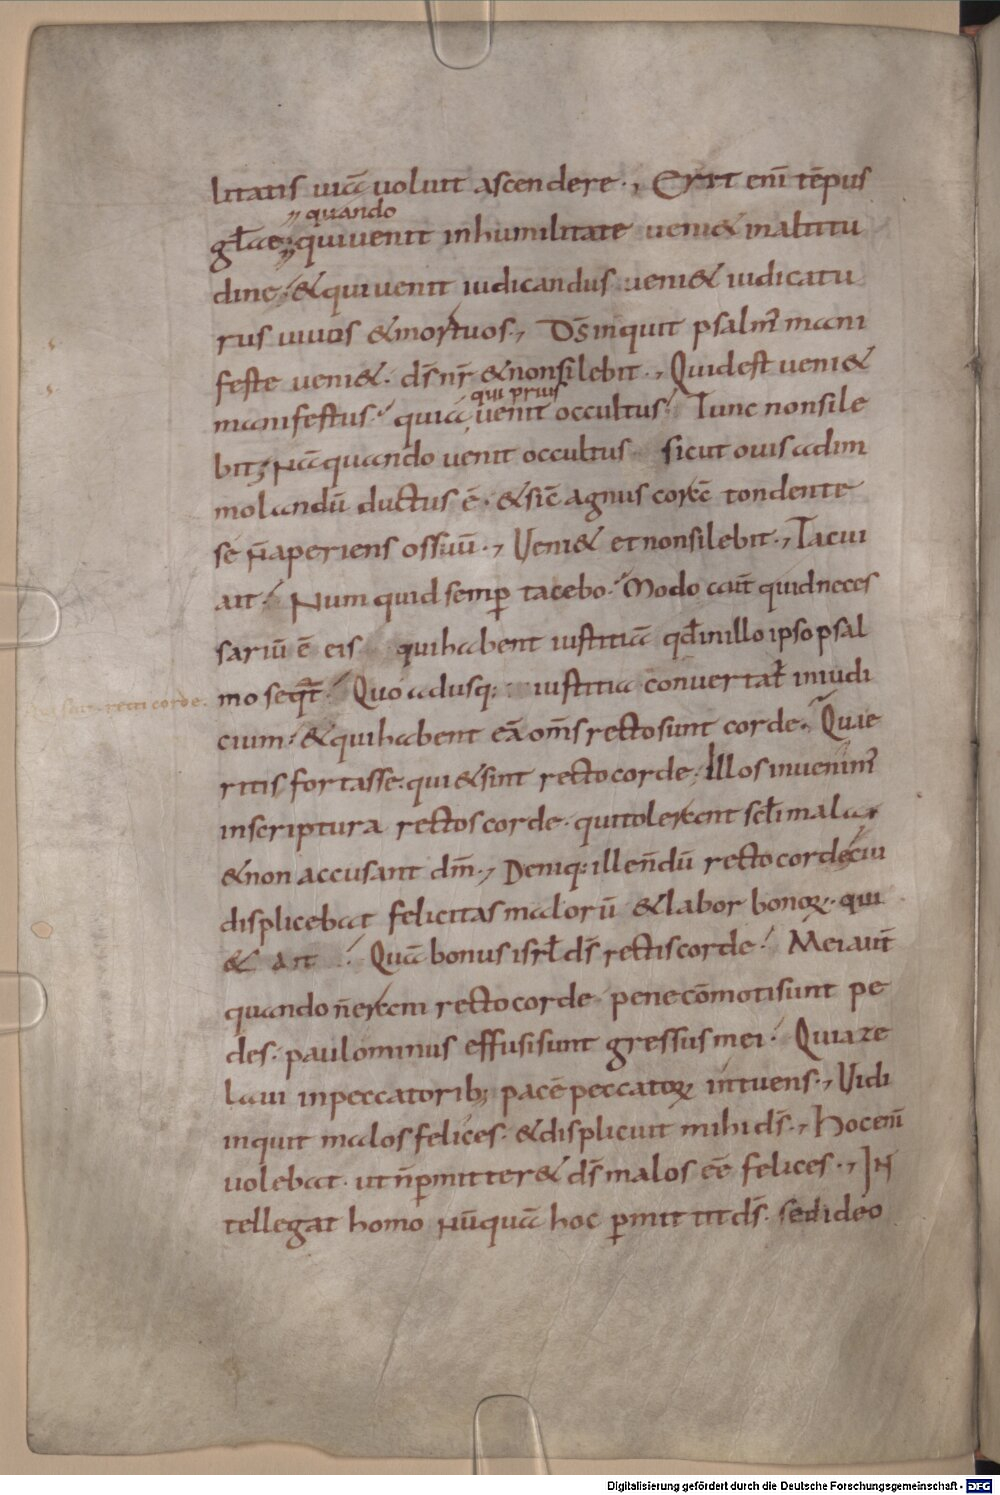 litatis uiā uoluit ascendere., Erit enī tēpus
,, quando
gl̄ae;,, qui uenit in humilitate ueni& in altitu
dine; & qui uenit iudicandus ueni& iudicatu
rus uiuos & mortuos., D̄s inquit psalm̄ mani
feste ueni&. d̄s nr̄ & non silebit., Quid est ueni&
qui prius
manifestus; quia uenit occultus; Tunc non sile
bit; Nā quando uenit occultus sicut ouis ad im
molandū ductus ē. & sic̄ agnus corā tondente
se n̄ aperiens os suū., Ueni& et non silebit., Tacui
ait; Num quid semp̄ tacebo; Modo aūt quid neces
sariū ē eis qui habent iustitiā qd̄ in illo ipso psal
mo seqt̄; Quo adusq; iustitia conuertat̄ in iudi
cium; & qui habent eā om̄s recto sunt corde., Quae
ritis fortasse. qui & sint recto corde; Illos inuenim̄
in scriptura rectos corde. qui tolerant scl̄i mala
& non accusant dm̄., Deniq; ille n̄dū recto corde cui
displicebat felicitas malorū & labor bonoꝝ. qui
& ait ; Quā bonus isrl̄ d̄s rectis corde; Mei aūt
quando n̄ eram recto corde pene cōmoti sunt pe
des. paulominus effusi sunt gressus mei; Quia ze
laui in peccatorib; pacē peccatoꝝ intuens., Uidi
inquit malos felices. & displicuit mihi d̄s., Hoc enī
uolebat. ut n̄ p̄mitter& d̄s malos eē felices., IN
tellegat homo nūquā hoc p̄mittit d̄s. sed ideo
recti corde.
Digitalisierung gefördert durch die Deutsche Forschungsgemeinschaft - DFG